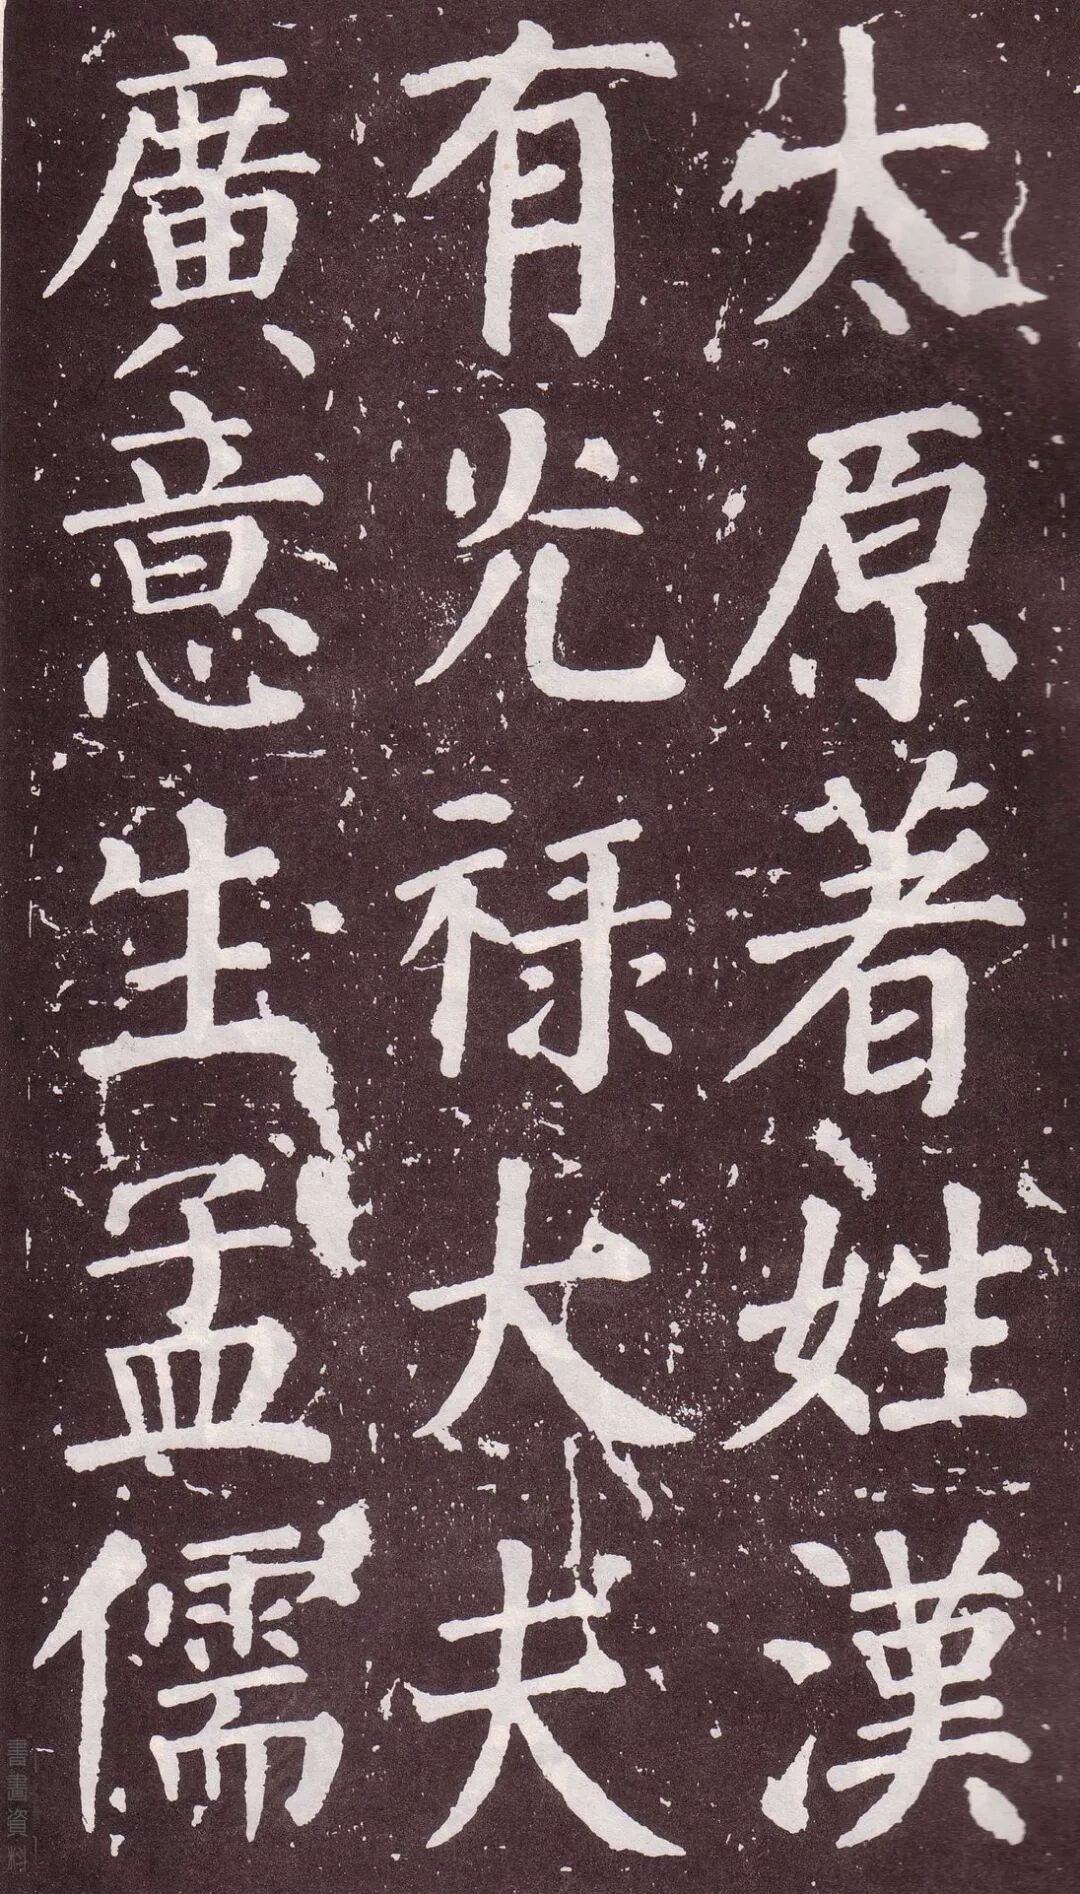 太原著姓漢
有光禄大夫
廣意生孟儒
書畫資料